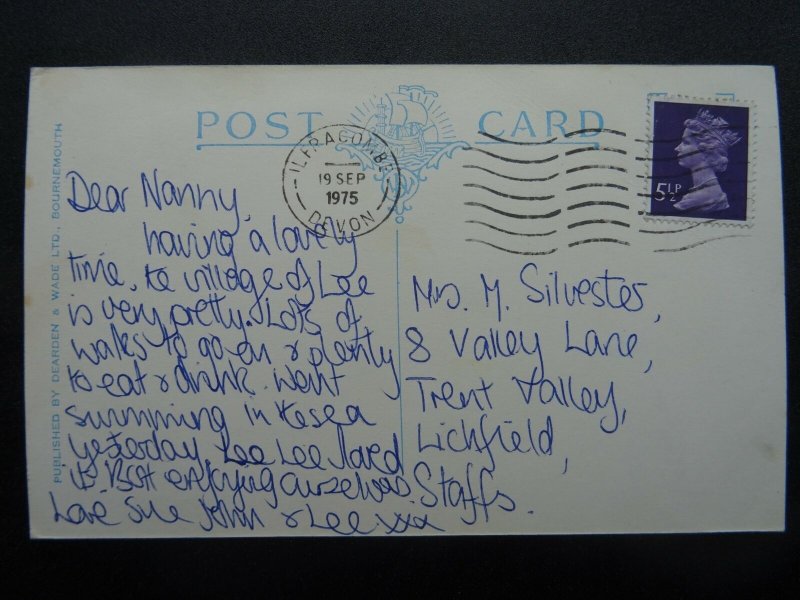 POST CARD
ILFRACOMBE
19 SEP
1975
DEVON
5½P
PUBLISHED BY DEARDEN & WADE LTD., BOURNEMOUTH
Dear Nanny,
having a lovely
time, the village of Lee
is very pretty. Lots of
walks to go on & plenty
to eat & drink. Went
swimming in the sea
yesterday, Lee loved
it. Both enjoying ourselves.
Love, Sue John & Lee xxx
Mrs. M. Silvester,
8 Valley Lane,
Trent Valley,
Lichfield,
Staffs.